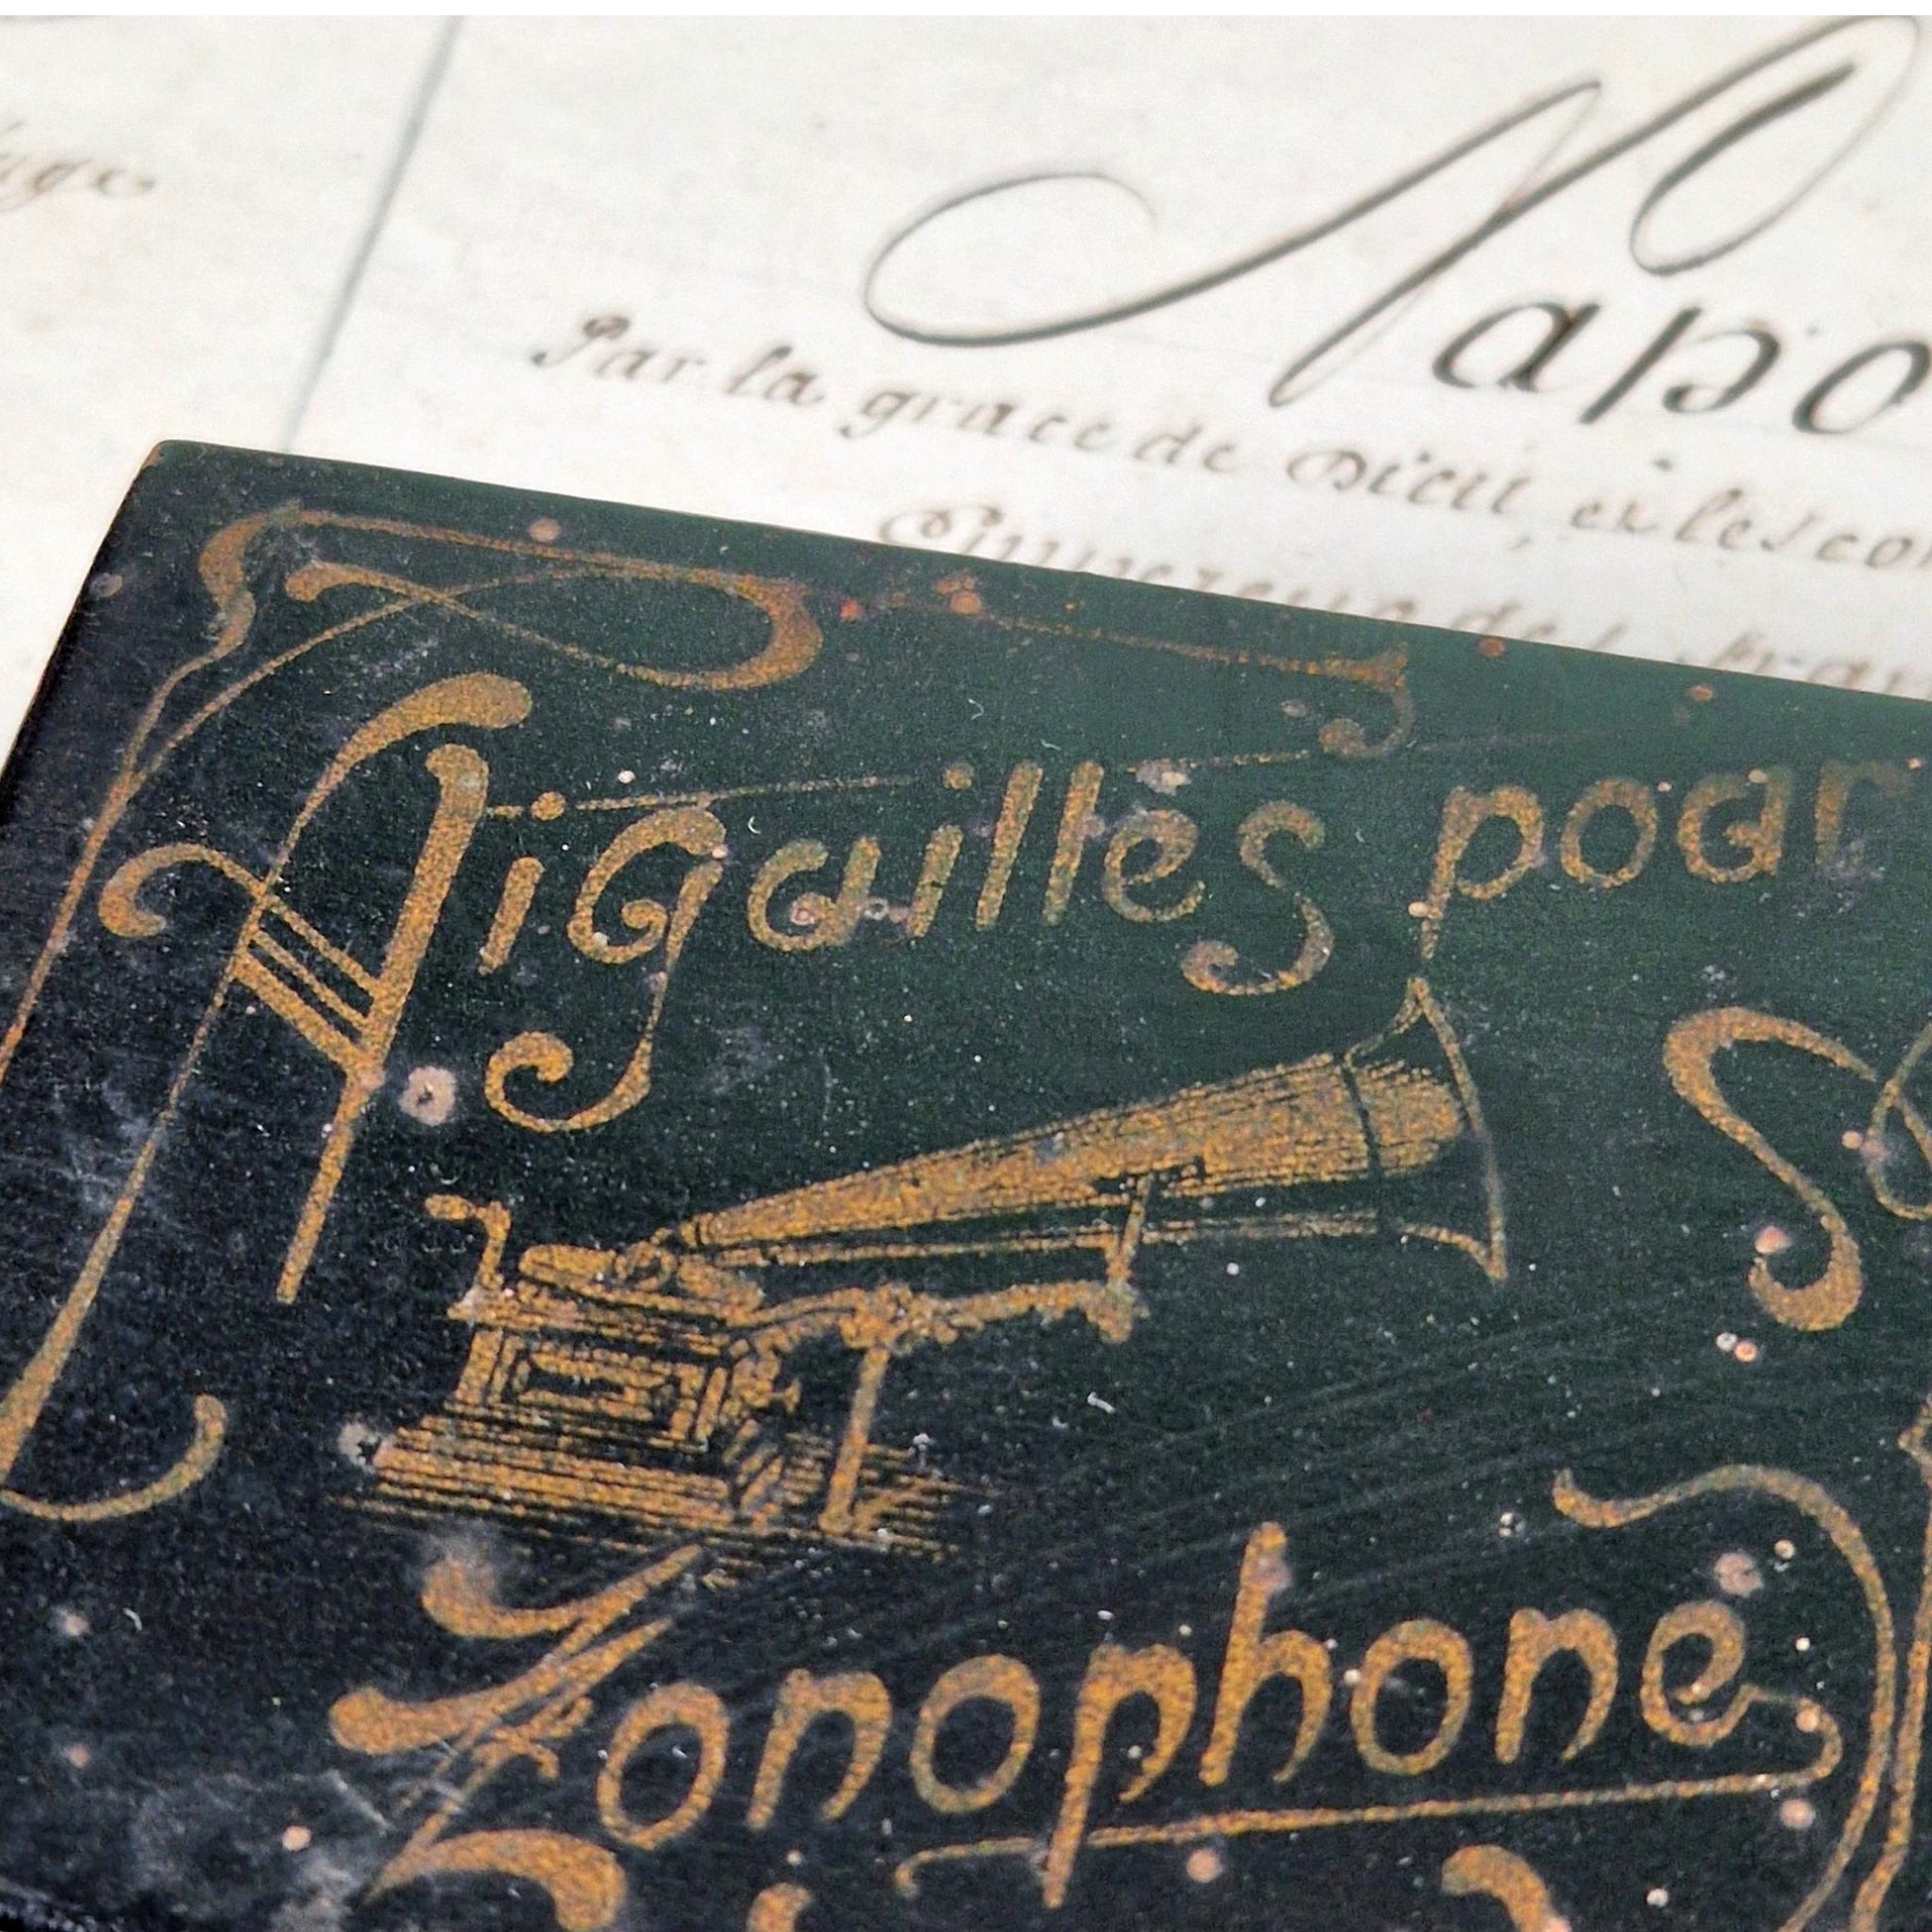 uge
Napo
Par la grace de Dieu, et les con
Empereur des
Aiguilles pour
Zonophone